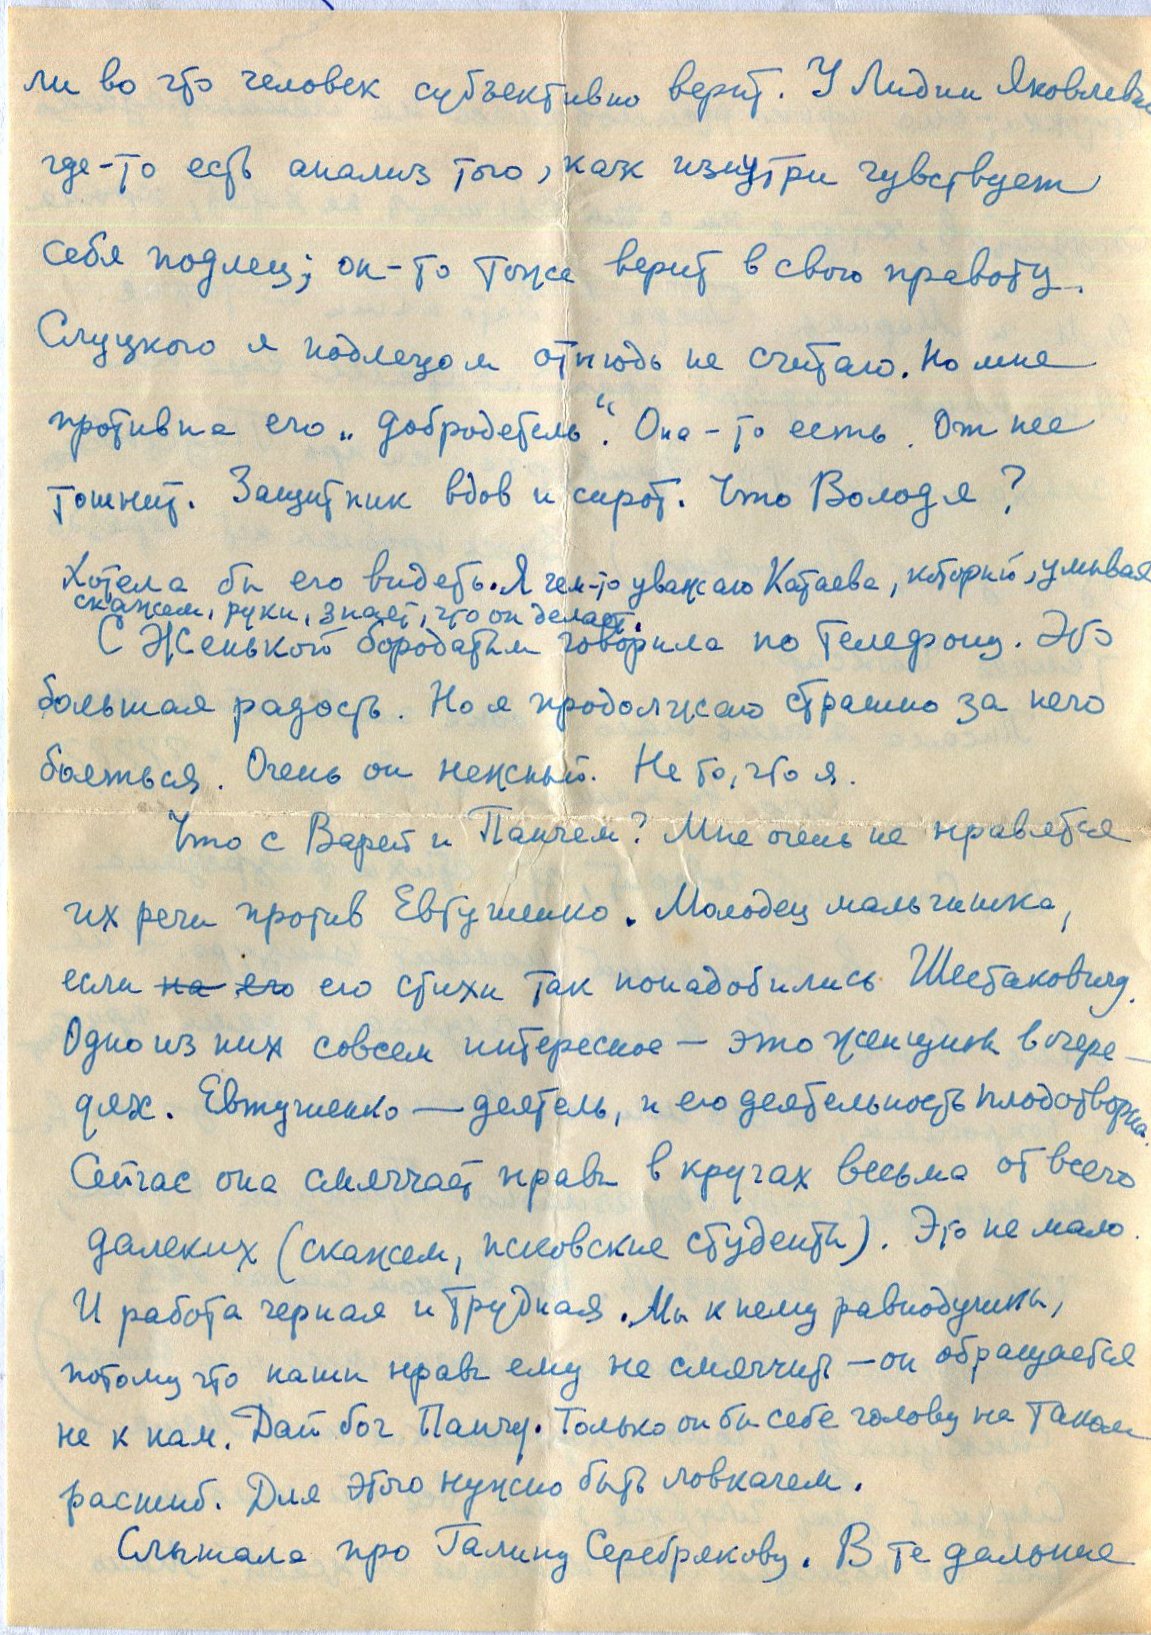 ли во что человек субъективно верит. У Лидии Яковлевны
где-то есть анализ того, как изнутри чувствует
себя подлец; он-то тоже верит в свою правоту.
Слуцкого я подлецом отнюдь не считаю. Но мне
противна его „добродетель“. Она-то есть. От нее
тошнит. Защитник вдов и сирот. Что Володя?
Хотела бы его видеть. Я чем-то уважаю Катаева, который, умывая
скажем, руки, знает, что он делает.
С Женькой бородатым говорила по телефону. Это
большая радость. Но я продолжаю страшно за него
бояться. Очень он нежный. Не то, что я.
Что с Варей и Панчем? Мне очень не нравятся
их речи против Евтушенко. Молодец мальчишка,
если на его его стихи так понадобились Шестаковичу.
Одно из них совсем интересное — это женщины в очере-
дях. Евтушенко — деятель, и его деятельность плодотворна.
Сейчас она смягчает нравы в кругах весьма от всего
далеких (скажем, псковские студенты). Это не мало.
И работа черная и трудная. Мы к нему равнодушны,
потому что наши нравы ему не смягчить — он обращается
не к нам. Дай бог Панчу. Только он бы себе голову на таком
расшиб. Для этого нужно быть ловкачем.
Слышала про Галину Серебрякову. В те дальние